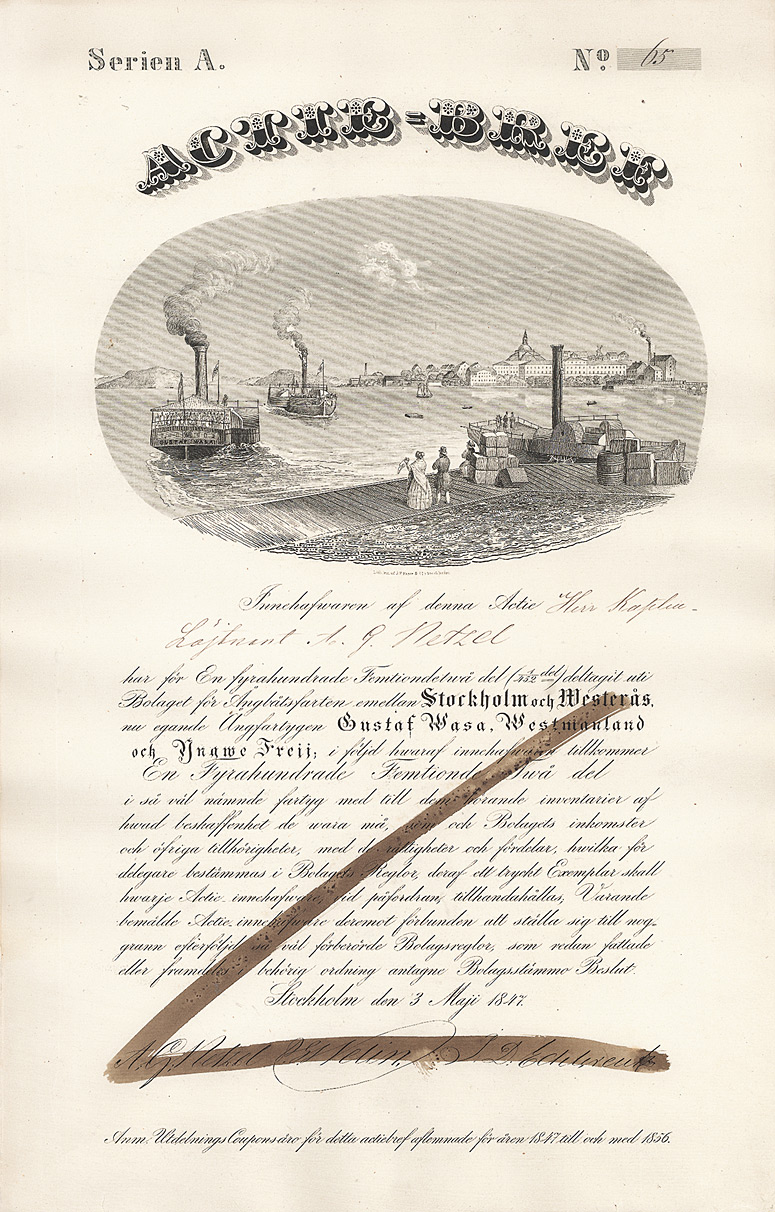 Serien A.
No. 65
ACTIE=BREF
GUSTAF WASA
Innehafwaren af denna Actie Herr Kapten-
Löjtnant A. G. Netzel
har för En fyrahundrade Femtiondetwå del (1/452 del) deltagit uti
Bolaget för Ångbåtsfarten emellan Stockholm och Westerås,
nu egande Ångfartygen Gustaf Wasa, Westmanland
och Yngwe Freij; i följd hwaraf innehafwaren tillkommer
En Fyrahundrade Femtionde Twå del
i så väl nämnde fartyg med till dem hörande inventarier af
hwad beskaffenhet de wara må, som och Bolagets inkomster
och öfriga tillhörigheter, med de rättigheter och fördelar, hwilka för
delegare bestämmas i Bolagets Reglor, deraf ett tryckt Exemplar skall
hwarje Actie innehafware, wid påfordran, tillhandahållas, Warande
bemälde Actie innehafware deremot förbunden att ställa sig till nog-
grann efterföljd så väl förberörde Bolagsreglor, som redan fattade
eller framdeles i behörig ordning antagne Bolagsstämmo Beslut.
Stockholm den 3 Maji 1847.
A. G. Netzel
Anm. Utdelnings Coupons äro för detta actiebref aflemnade för åren 1847 till och med 1856.